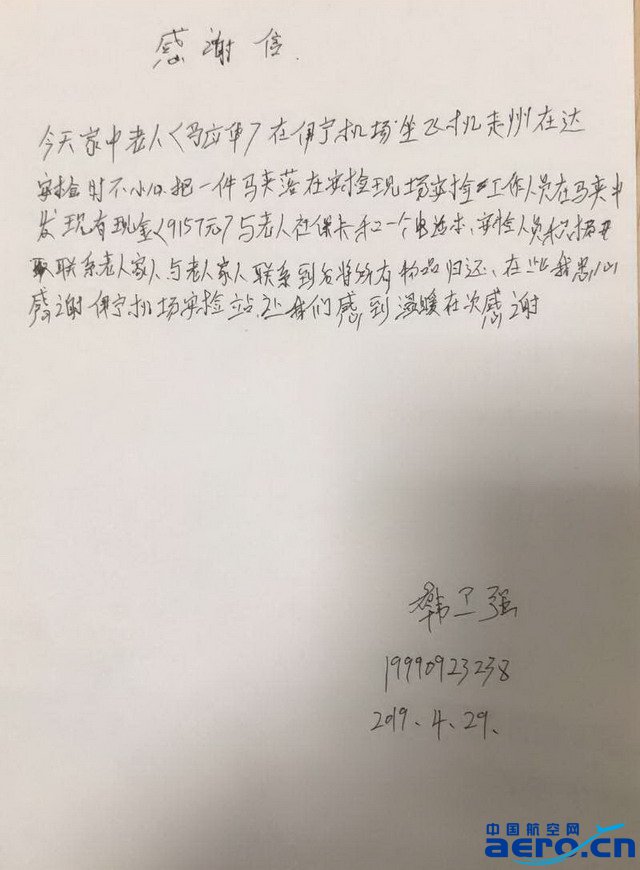 感谢信
今天家中老人〈马应华〉在伊宁机场坐飞机走州在达
安检时不小心把一件马夹落在安检现场安检工作人员在马夹中
发现有现金〈9157元〉与老人社保卡和一个电话本、安检人员积极
联系老人家人与老人家人联系到后将所有物品归还、在此我衷心
感谢伊宁机场安检站让我们感到温暖在次感谢
韩卫强
19990923238
2019.4.29.
中国航空网
aero.cn